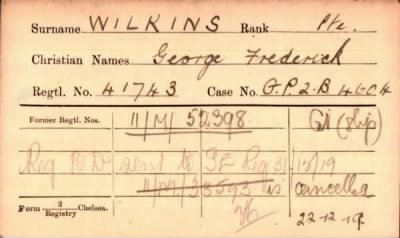 Surname WILKINS Rank Pte.
Christian Names George Frederick
Regtl. No. 41743 Case No. G.P.2.B 4604
Former Regtl. Nos. 11/M/ 52398 G1 (Slip)
Reg sent to Reg 31/12/19
11/M/33593 is cancelled
Form 2 Registry Chelsea. 22-12-19.